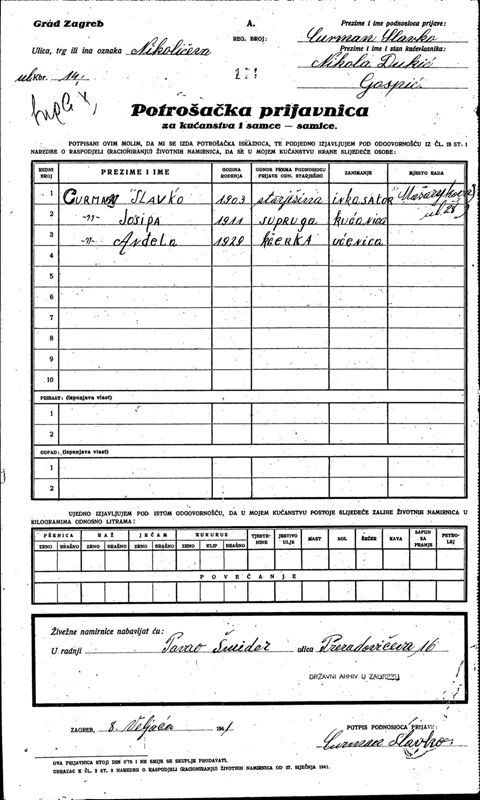 Grad Zagreb
A.
Prezime i ime podnosioca prijave:
REG. BROJ:
Curman Slavko
Ulica, trg ili ina oznaka Nikolićeva
Prezime i ime i stan kućevlasnika:
Nikola Dukić
ul Kbr. 14.
Gospić.
Potrošačka prijavnica
za kućanstva i samce — samice.
POTPISANI OVIM MOLIM, DA MI SE IZDA POTROŠAČKA ISKAZNICA, TE PODJEDNO IZJAVLJUJEM POD ODGOVORNOŠĆU IZ ČL. 18 ST. 1
NAREDBE O RASPODJELI (RACIONIRANJU) ŽIVOTNIH NAMIRNICA, DA SE U MOJEM KUĆANSTVU HRANE SLIJEDEĆE OSOBE:
REDNI BROJ PREZIME I IME GODINA ROĐENJA ODNOS PREMA PODNOSIOCU PRIJAVE ODN. STARJEŠINI ZANIMANJE MJESTO RADA
1 CURMAN SLAVKO 1903 starješina inkasator Mašarykova
2 -"- Josipa 1911 supruga kućanica ul. 28
3 -"- Anđela 1929 kćerka učenica
4
5
6
7
8
9
10
PRIRAST: (ispunjava vlast)
1
2
ODPAD: (ispunjava vlast)
1
2
UJEDNO IZJAVLJUJEM POD ISTOM ODGOVORNOŠĆU, DA U MOJEM KUĆANSTVU POSTOJE SLIJEDEĆE ZALIHE ŽIVOTNIH NAMIRNICA U
KILOGRAMIMA ODNOSNO LITRAMA:
PŠENICA RAŽ JEČAM KUKURUZ TJESTENINE JESTIVO ULJE MAST SOL ŠEĆER KAVA SAPUN ZA PRANJE PETROLEJ
ZRNO BRAŠNO ZRNO BRAŠNO ZRNO BRAŠNO ZRNO KLIP BRAŠNO
POVEĆANJE
Živežne namirnice nabavljat ću:
U radnji Pavao Šnider ulica Preradovićeva 16
DRŽAVNI ARHIV U ZAGREBU
ZAGREB, 8. Veljače 1941
POTPIS PODNOSIOCA PRIJAVE:
Curman Slavko
OVA PRIJAVNICA STOJI DIN 0'75 I NE SMIJE SE SKUPLJE PRODAVATI.
OBRAZAC K ČL. 2 ST. 2 NAREDBE O RASPODJELI (RACIONIRANJU) ŽIVOTNIH NAMIRNICA OD 27. SIJEČNJA 1941.